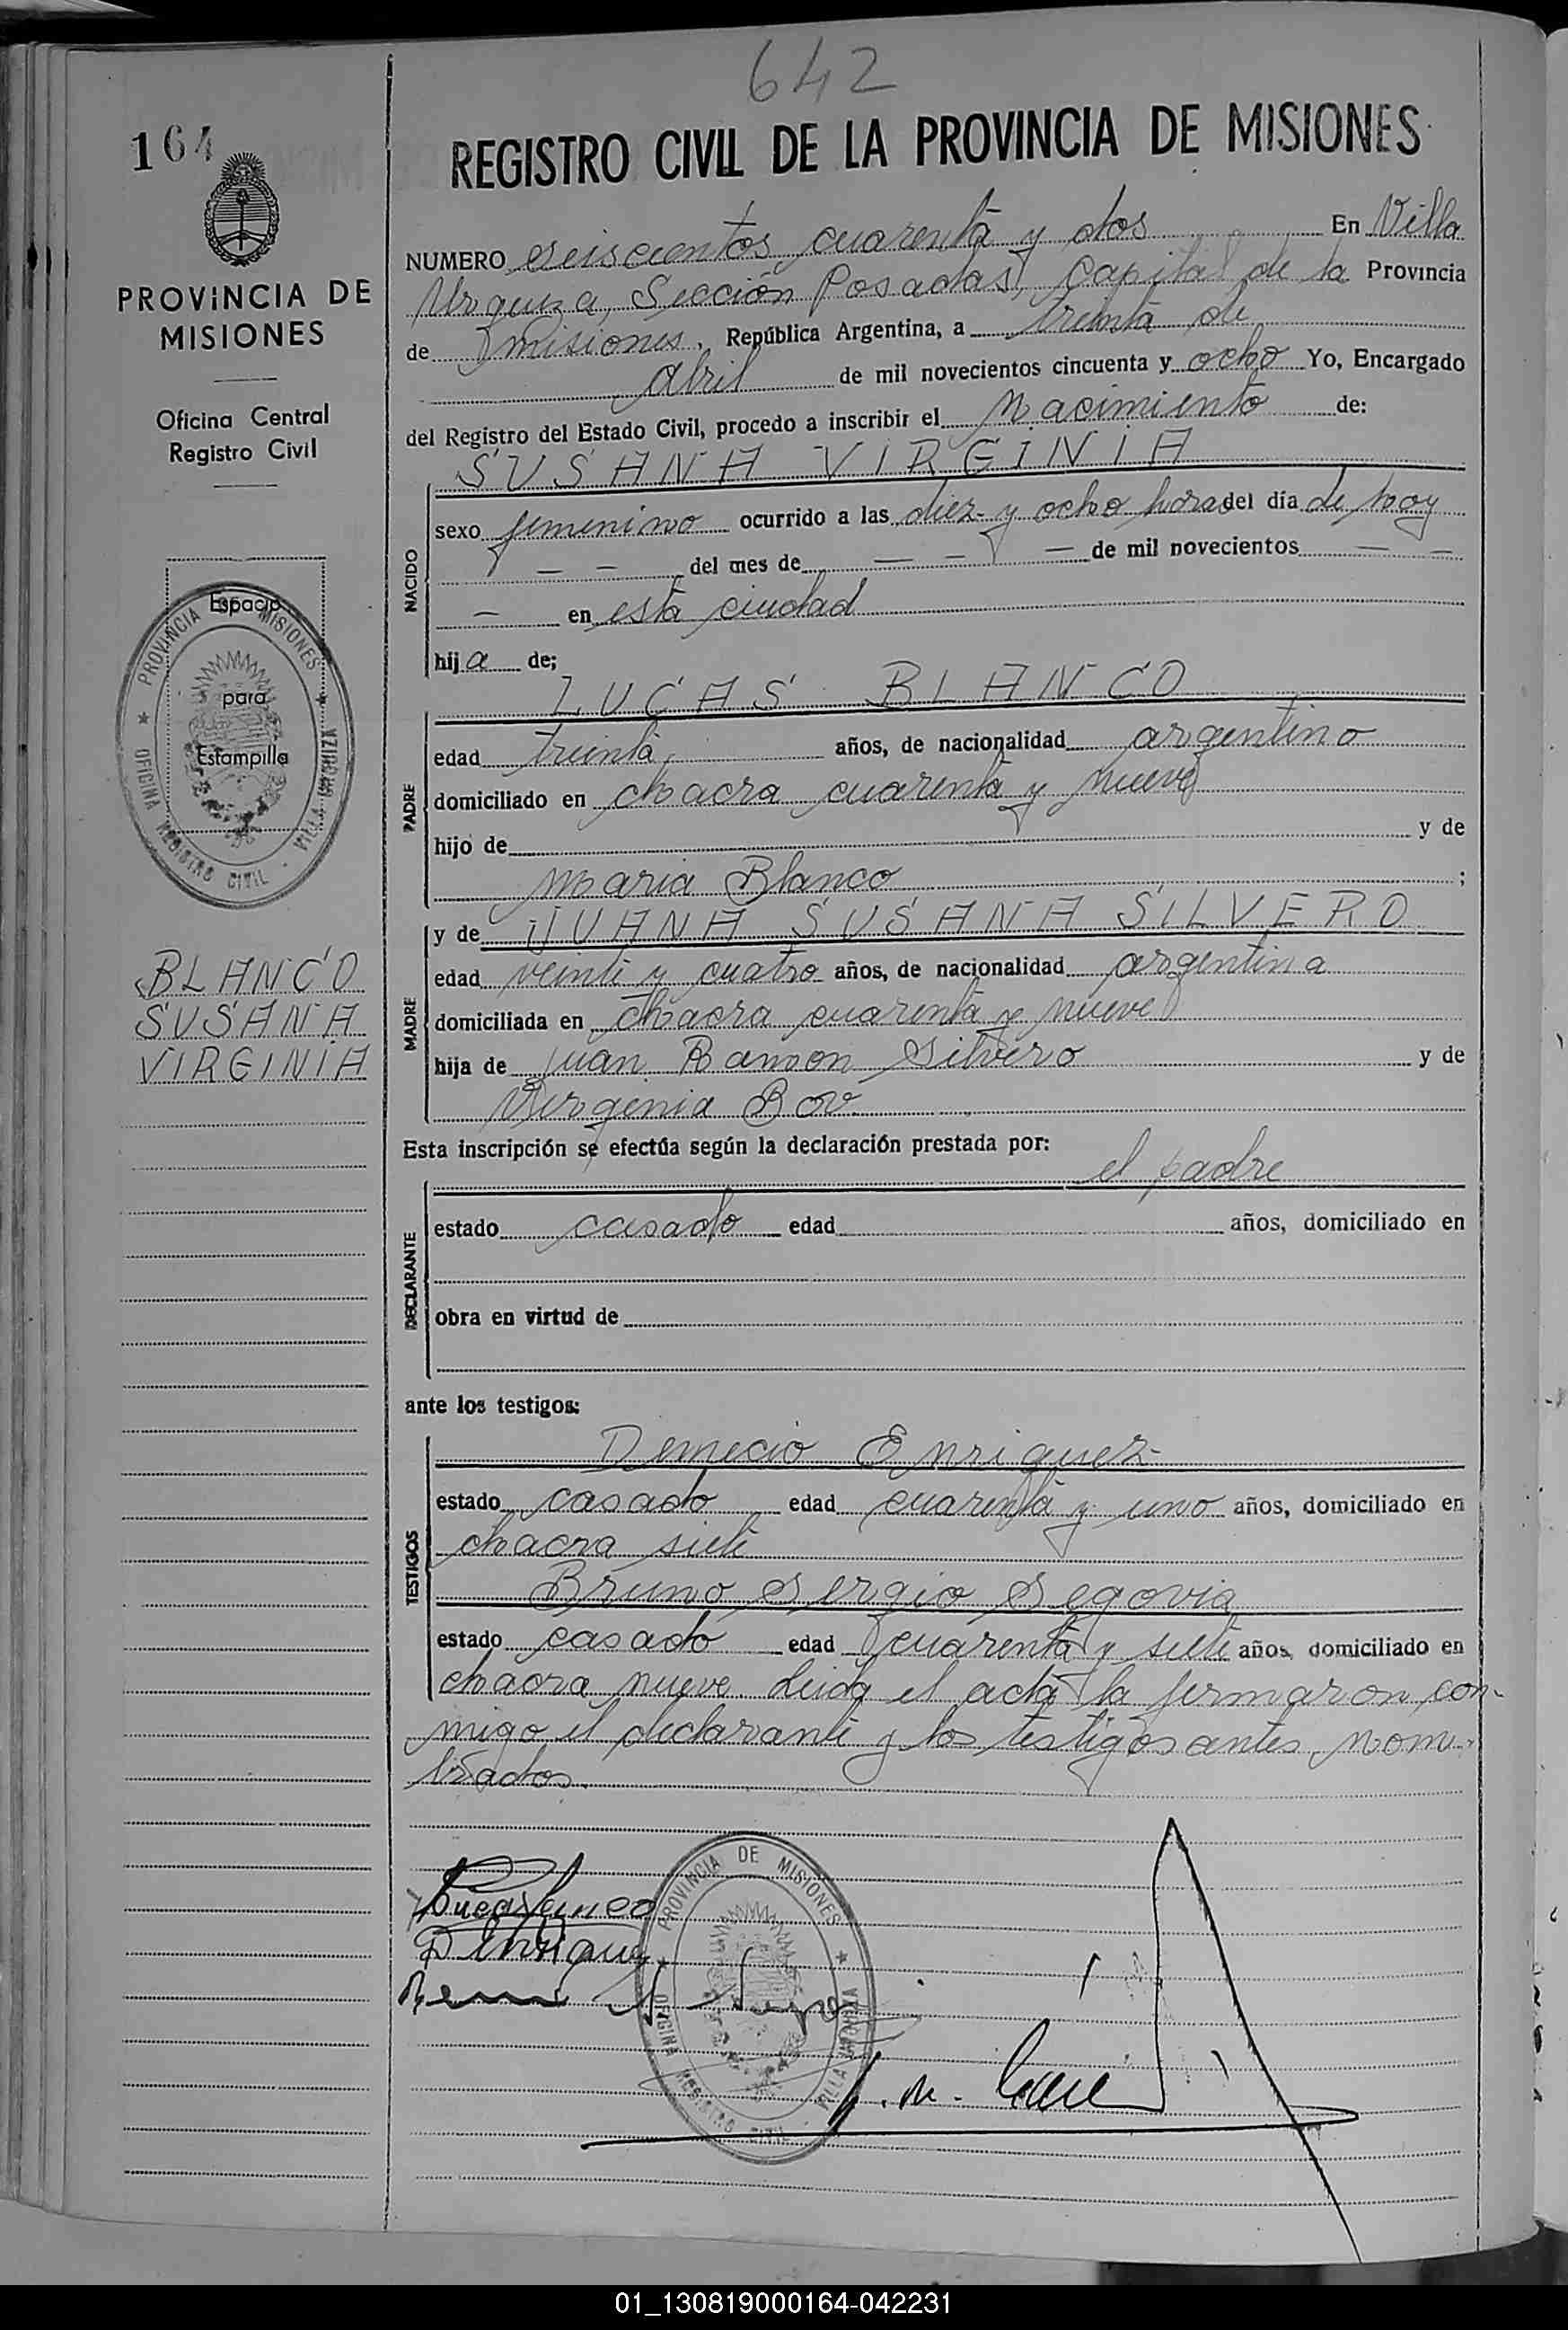 642
164
REGISTRO CIVIL DE LA PROVINCIA DE MISIONES
PROVINCIA DE
MISIONES
Oficina Central
Registro Civil
NUMERO seiscientos cuarenta y dos En Villa
Urquiza, Sección Posadas, Capital de la Provincia
de Misiones, República Argentina, a treinta de
abril de mil novecientos cincuenta y ocho Yo, Encargado
del Registro del Estado Civil, procedo a inscribir el Nacimiento de:
SUSANA VIRGINIA
NACIDO
sexo femenino ocurrido a las diez y ocho horas del día de hoy
— — del mes de — — — de mil novecientos — —
— en esta ciudad
hija de;
LUCAS BLANCO
PADRE
edad treinta años, de nacionalidad argentino
domiciliado en chacra cuarenta y nueve
hijo de y de
Maria Blanco ;
y de JUANA SUSANA SILVERO
MADRE
edad veinti y cuatro años, de nacionalidad argentina
domiciliada en chacra cuarenta y nueve
hija de Juan Ramon Silvero y de
Virginia Bov
Esta inscripción se efectúa según la declaración prestada por:
el padre
DECLARANTE
estado casado edad años, domiciliado en
obra en virtud de
ante los testigos:
Demecio Enriquez
TESTIGOS
estado casado edad cuarenta y uno años, domiciliado en
chacra siete
Bruno Sergio Segovia
estado casado edad cuarenta y siete años, domiciliado en
chacra nueve. Leida el acta la firmaron con-
migo el declarante y los testigos antes nom-
brados.
Espacio
para
Estampilla
PROVINCIA DE MISIONES
OFICINA REGISTRO CIVIL - VILLA URQUIZA
BLANCO
SUSANA
VIRGINIA
Lucas Blanco
D Enriquez
PROVINCIA DE MISIONES
OFICINA REGISTRO CIVIL - VILLA URQUIZA
01_130819000164-042231